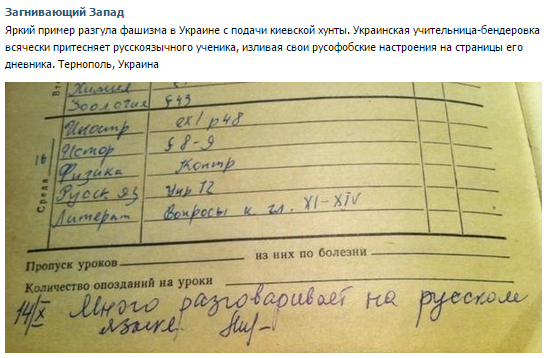 Загнивающий Запад
Яркий пример разгула фашизма в Украине с подачи киевской хунты. Украинская учительница-бендеровка
всячески притесняет русскоязычного ученика, изливая свои русофобские настроения на страницы его
дневника. Тернополь, Украина
Вт
Химия
Зоология §43
Среда 16
Иностр ex1 p48
Истор § 8-9
Физика Контр
Русск яз Упр 72
Литерат Вопросы к гл. XI-XIV
Пропуск уроков из них по болезни
Количество опозданий на уроки
14/X Много разговаривает на русском
языке.